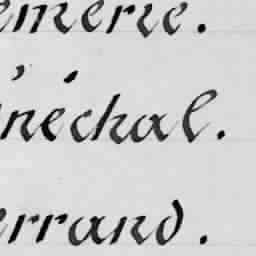 emerie.
néchal.
errand.